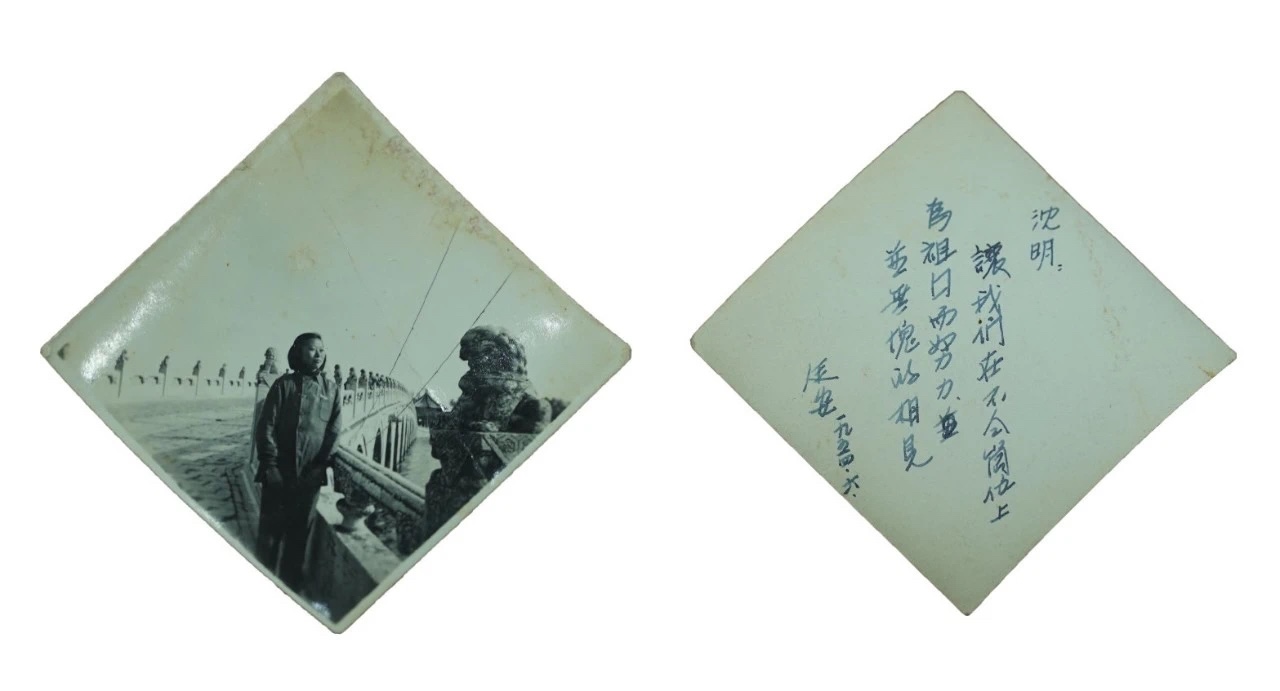 沈明:
讓我們在不仝崗位上
為祖囗而努力、並
並無愧的相見
安 一九五四.六.